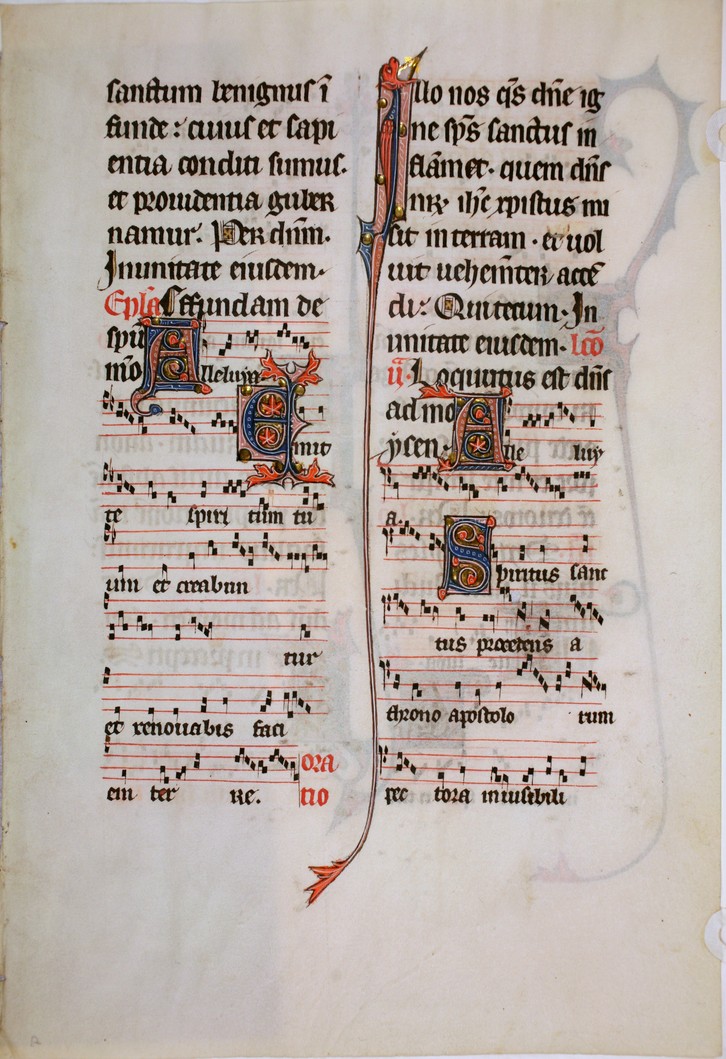 sanctum benignus ī
funde : cuius et sapi
entia conditi sumus.
et prouidentia guber
namur. Per dn̄m.
In unitate eiusdem.
Ep̄la Effundam de
spū
mō Alleluya.
Emit
te spiri tum tu
um et creabun
tur
et renouabis faci
em ter re. ora
tio
Illo nos q̄s dn̄e ig
ne sp̄s sanctus in
flāmet. quem dn̄s
nr̄. ih̄c xpistus mi
sit in terram. et uol
uit uehemt̄er accē
di: Qui tecum. In
unitate eiusdem. lc̄o
ii. Loquutus est dn̄s
ad mo
ysen. Alle luy
a.
Spiritus sanc
tus procedens a
throno apostolo rum
pec tora inuisibili